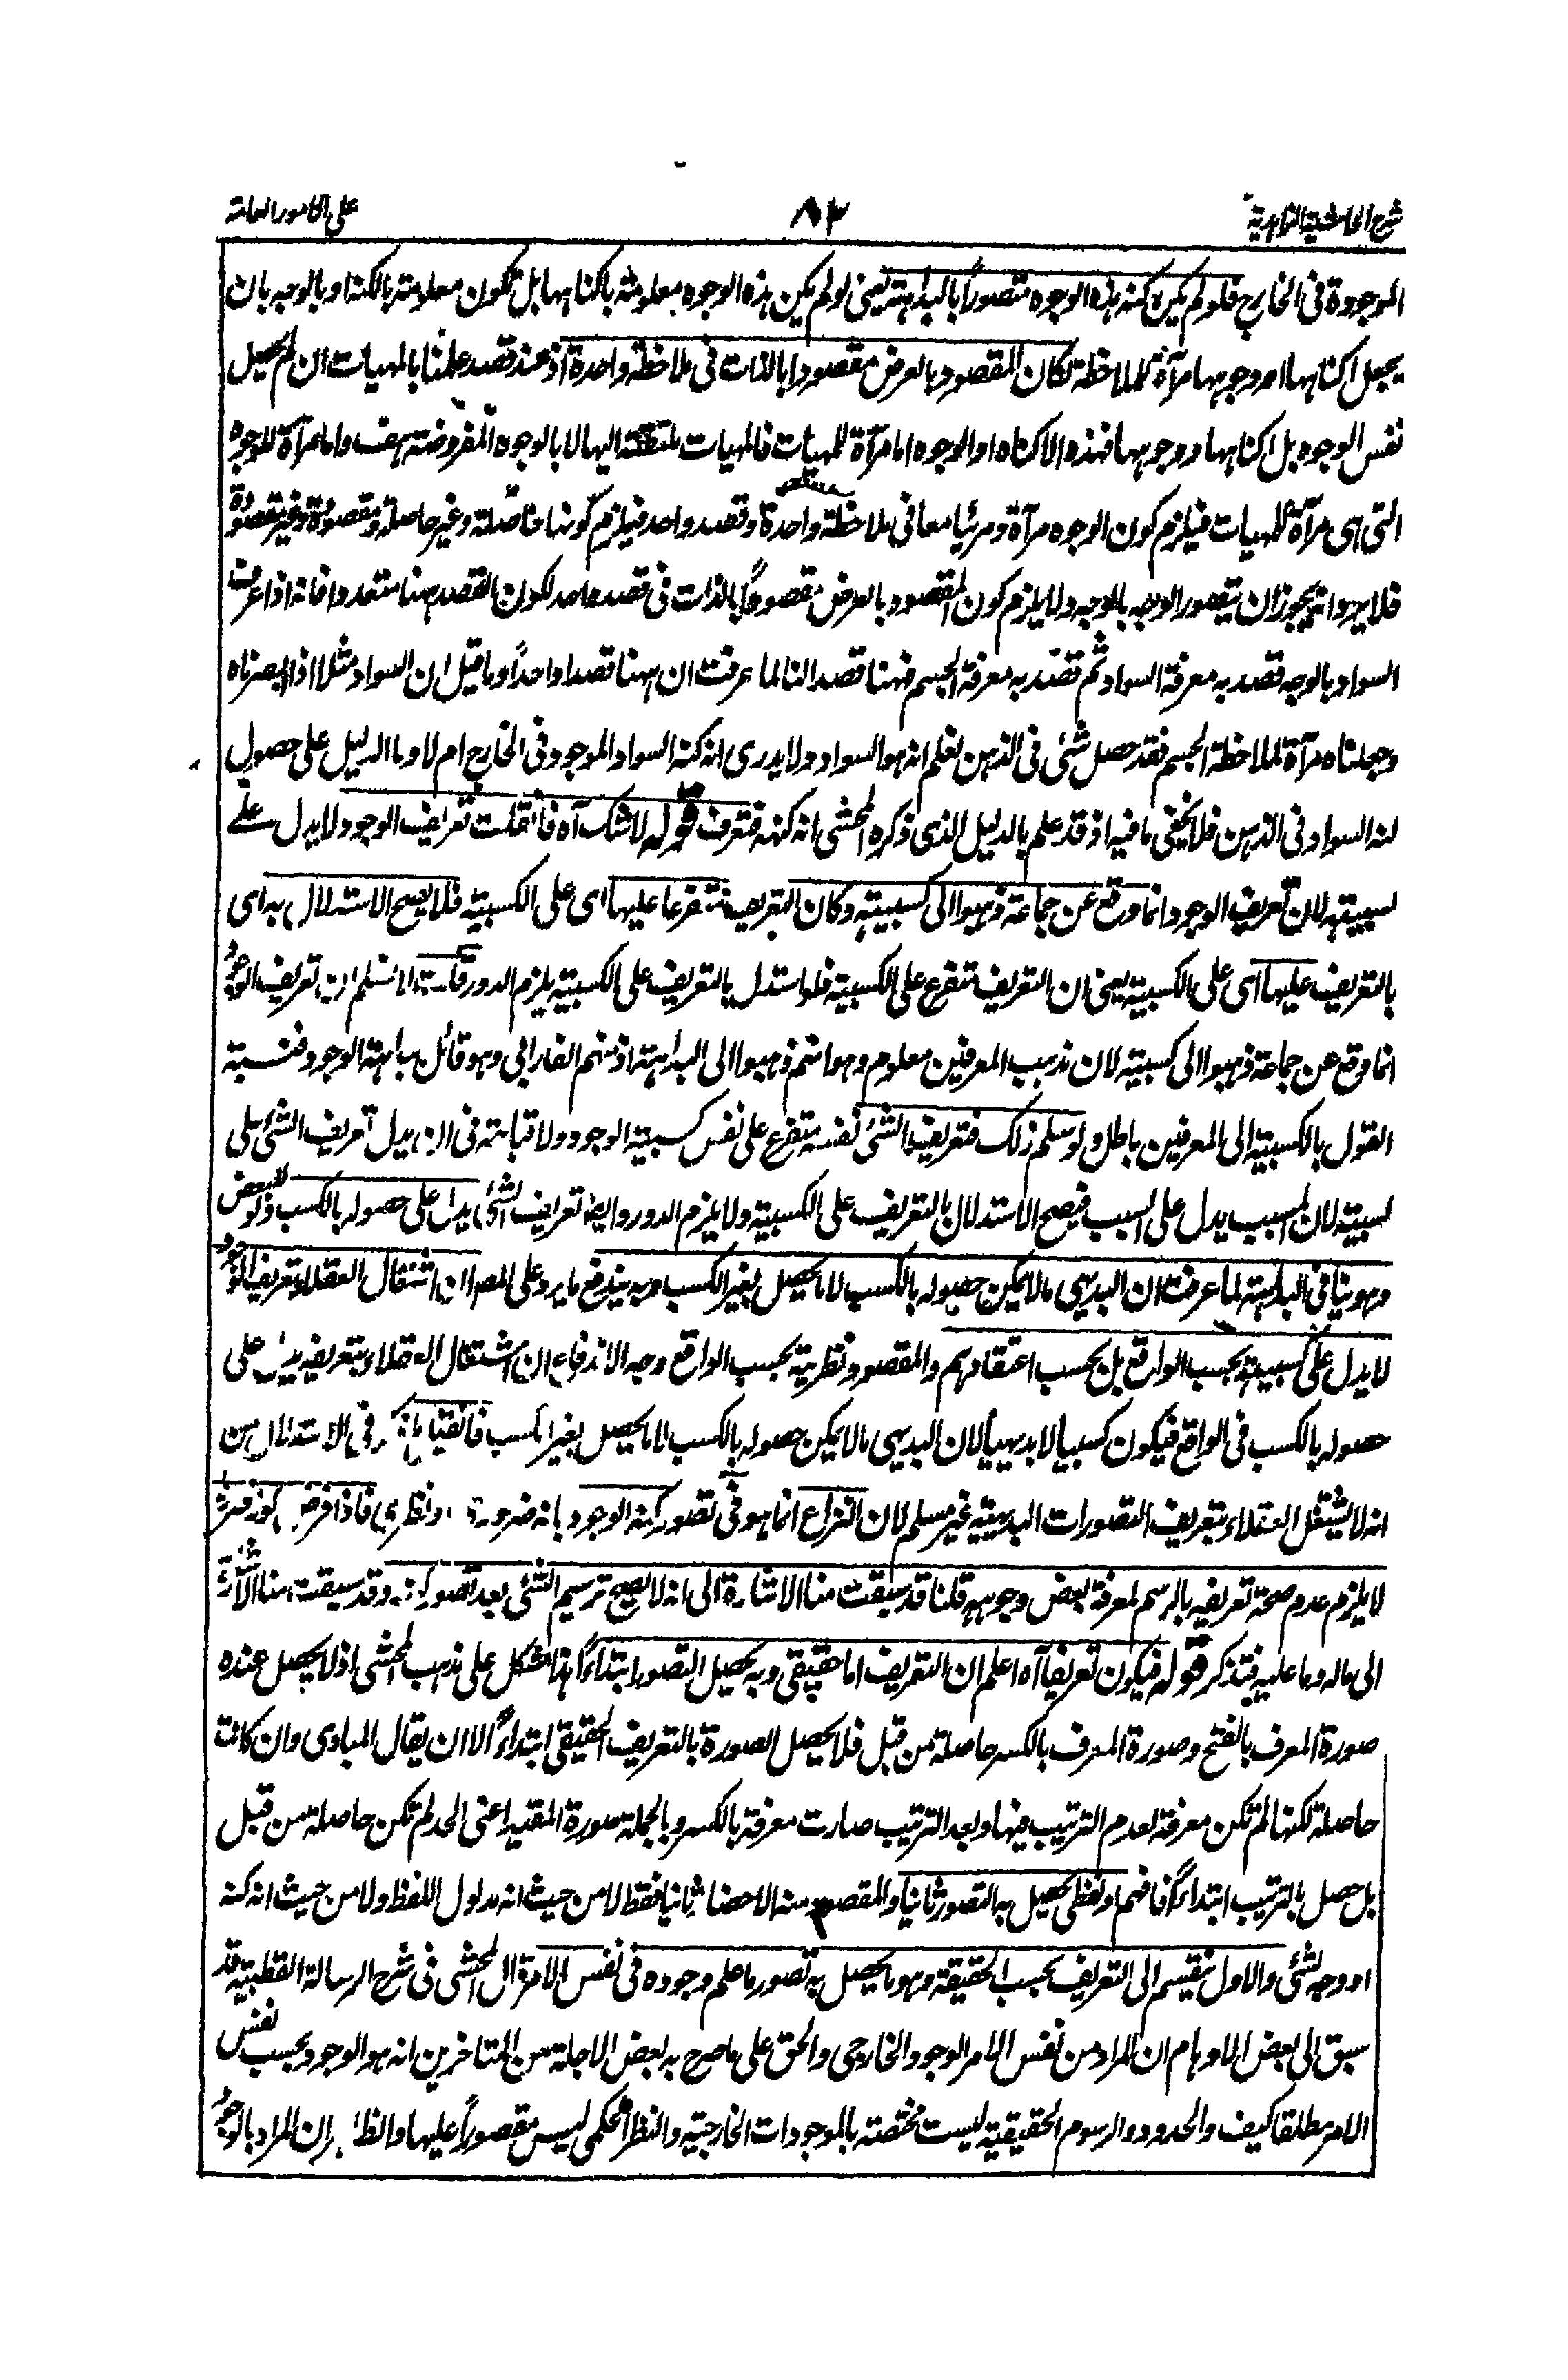 شرح الحاشية الزاهدية
٨٣
على الامور العامة
الموجودة فى الخارج فلو لم يكن كنه هذه الوجوه متصوراً بالبداهته يعنى لو لم يكن هذه الوجوه معلومته باكتناهها بل تكون معلومته بالكنه او بالوجه بان
يجعل اكناهها او وجوهها مرآة لملاحظته لكان المقصود بالعرض مقصودا بالذات فى ملاحظته واحدة اذ عند قصد علمنا بالمهيات ان لم يحصل
نفس الوجوه بل اكناهها ووجوهها فهذه الاكناه او الوجوه اما مرآة للمهيات فالمهيات ملتفتة اليها لا بالوجوه المفروضته هف واما مرآة للوجوه
التى هى مرآة للمهيات فيلزم كون الوجوه مرآة ومرئيا معا فى ملاحظته واحدة وقصد واحد فيلزم كونها حاصلته وغير حاصلته ومقصودة وغير مقصودة
فلا يرد انه يجوز ان يتصور الوجه بالوجه ولا يلزم كون المقصود بالعرض مقصوداً بالذات فى قصد واحد لكون القصد ههنا متعددا فانه اذا عرفت
السواد بالوجه قصد به معرفة السواد ثم قصد به معرفة الجسم فههنا قصدان لما عرفت ان ههنا قصدا واحداً وما قيل ان السواد مثلا اذا ابصرناه
وجعلناه مرآة لملاحظة الجسم فقد حصل شئ فى الذهن نعلم انه هو السواد ولا يدرى انه كنه السواد الموجود فى الخارج ام لا وما الدليل على حصول
كنه السواد فى الذهن فلا يخفى ما فيه اذ قد علم بالدليل الذى ذكره المحشى انه كنهه فتعرف قوله لا شك آه فان قلت تعريف الوجود لا يدل على
كسبيته لان تعريف الوجود انما وقع عن جماعة ذهبوا الى كسبيته وكان التعريف متفرعا عليها اى على الكسبيته فلا يصح الاستدلال به اى
بالتعريف عليها اى على الكسبيته يعنى ان التعريف متفرع على الكسبيته فلو استدل بالتعريف على الكسبيته يلزم الدور قلت لا نسلم ان تعريف الوجود
انما وقع عن جماعة ذهبوا الى كسبيته لان مذهب المعرفين معلوم وهو انهم ذهبوا الى البداهته اذ منهم الفارابى وهو قائل ببداهته الوجود فنسبته
القول بالكسبيته الى المعرفين باطل ولو سلم ذلك فتعريف الشئ نفسه متفرع على نفس كسبيته الوجود ولا قباحته فى ان يدل تعريف الشئ على
كسبيته لان المسبب يدل على السبب فيصح الاستدلال بالتعريف على الكسبيته ولا يلزم الدور وايضا تعريف الشئ يدل على حصوله بالكسب ولو لبعض
وهو ينافى البداهته لما عرفت ان البديهى ما لا يمكن حصوله بالكسب لا ما يحصل بغير الكسب وبه يندفع ما يرد على المصـ ان اشتغال العقلاء بتعريف الوجود
لا يدل على كسبيته بحسب الواقع بل بحسب اعتقادهم والمقصود نظريته بحسب الواقع وجه الاندفاع ان اشتغال العقلاء بتعريفه يدل على
حصوله بالكسب فى الواقع فيكون كسبيا لا بديهيا لان البديهى ما لا يمكن حصوله بالكسب لا ما يحصل بغير الكسب فان قيل ما ذكر فى الاستدلال من
انه لا يشتغل العقلاء بتعريف التصورات البديهيته غير مسلم لان النزاع انما هو فى تصور كنه الوجود بانه ضرورى او نظرى فاذا فرض كونه ضروريا
لا يلزم عدم صحة تعريفه بالرسم لمعرفة بعض وجوهه قلنا قد سبقت منا الاشارة الى انه لا يصح ترسيم الشئ بعد تصور كنهه وقد سبقت منا الاشارة
الى ما له وما عليه فتذكر قوله فيكون تعريفا آه اعلم ان التعريف اما حقيقى وبه يحصل التصور ابتداءً هذا مشكل على مذهب المحشى اذ لا يحصل عنده
صورة المعرف بالفتح وصورة المعرف بالكسر حاصلته من قبل فلا يحصل الصورة بالتعريف الحقيقى ابتداءً الا ان يقال المبادى وان كانت
حاصلته لكنها لم تكن معرفة لعدم الترتيب فيها وبعد الترتيب صارت معرفة بالكسر وبالجملته صورة المقيد اعنى الحد لم تكن حاصلته من قبل
بل حصل بالترتيب ابتداءً فافهم او لفظى يحصل به التصور ثانيا والمقصود منه الاحضار ثانيا فقط لا من حيث انه مدلول اللفظ ولا من حيث انه كنه
او وجه لشئ والاول ينقسم الى التعريف بحسب الحقيقة وهو ما يحصل به تصور ما علم وجوده فى نفس الامر قال المحشى فى شرح الرسالة القطبيته قد
سبق الى بعض الاوهام ان المراد من نفس الامر الوجود الخارجى والحق على ما صرح به بعض الاجلته من المتاخرين انه هو الوجود بحسب نفس
الامر مطلقا كيف والحدود والرسوم الحقيقيته ليست مختصته بالموجودات الخارجيته والنظر الحكمى ليس مقصوراً عليها والظاهر ان المراد بالوجود